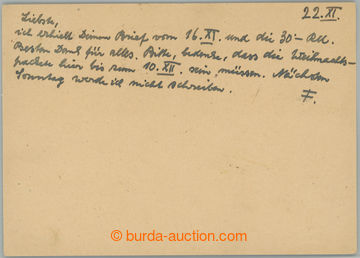 22.XI.
Liebste,
ich erhielt Deinen Brief vom 16.XI. und die 30- RM.
Besten Dank für alles. Bitte, bedenke, dass die Weihnachts-
packete hier bis zum 10.XII. sein müssen. Nächsten
Sonntag werde ich nicht schreiben.
F.
burda-auction.com